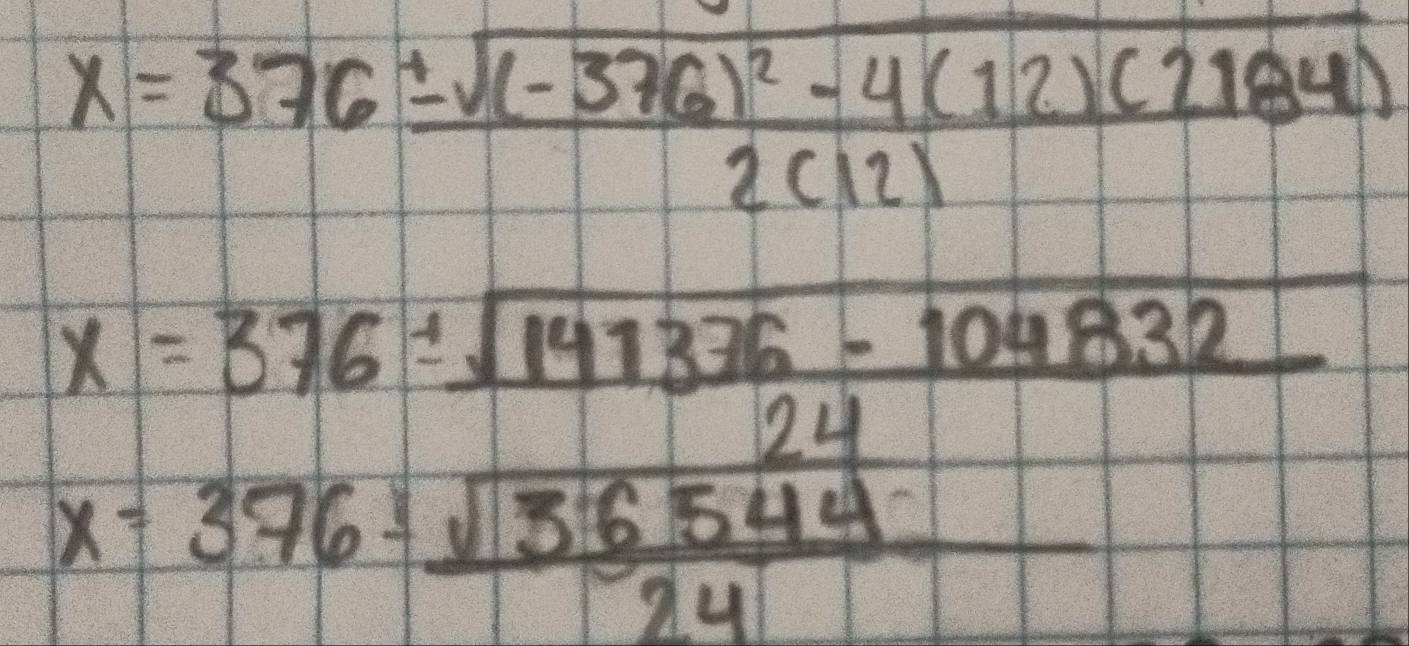 x = 376 ± √(-376)² - 4(12)(2184)
2(12)
x = 376 ± √141376 - 104832
24
x = 376 ± √36544
24